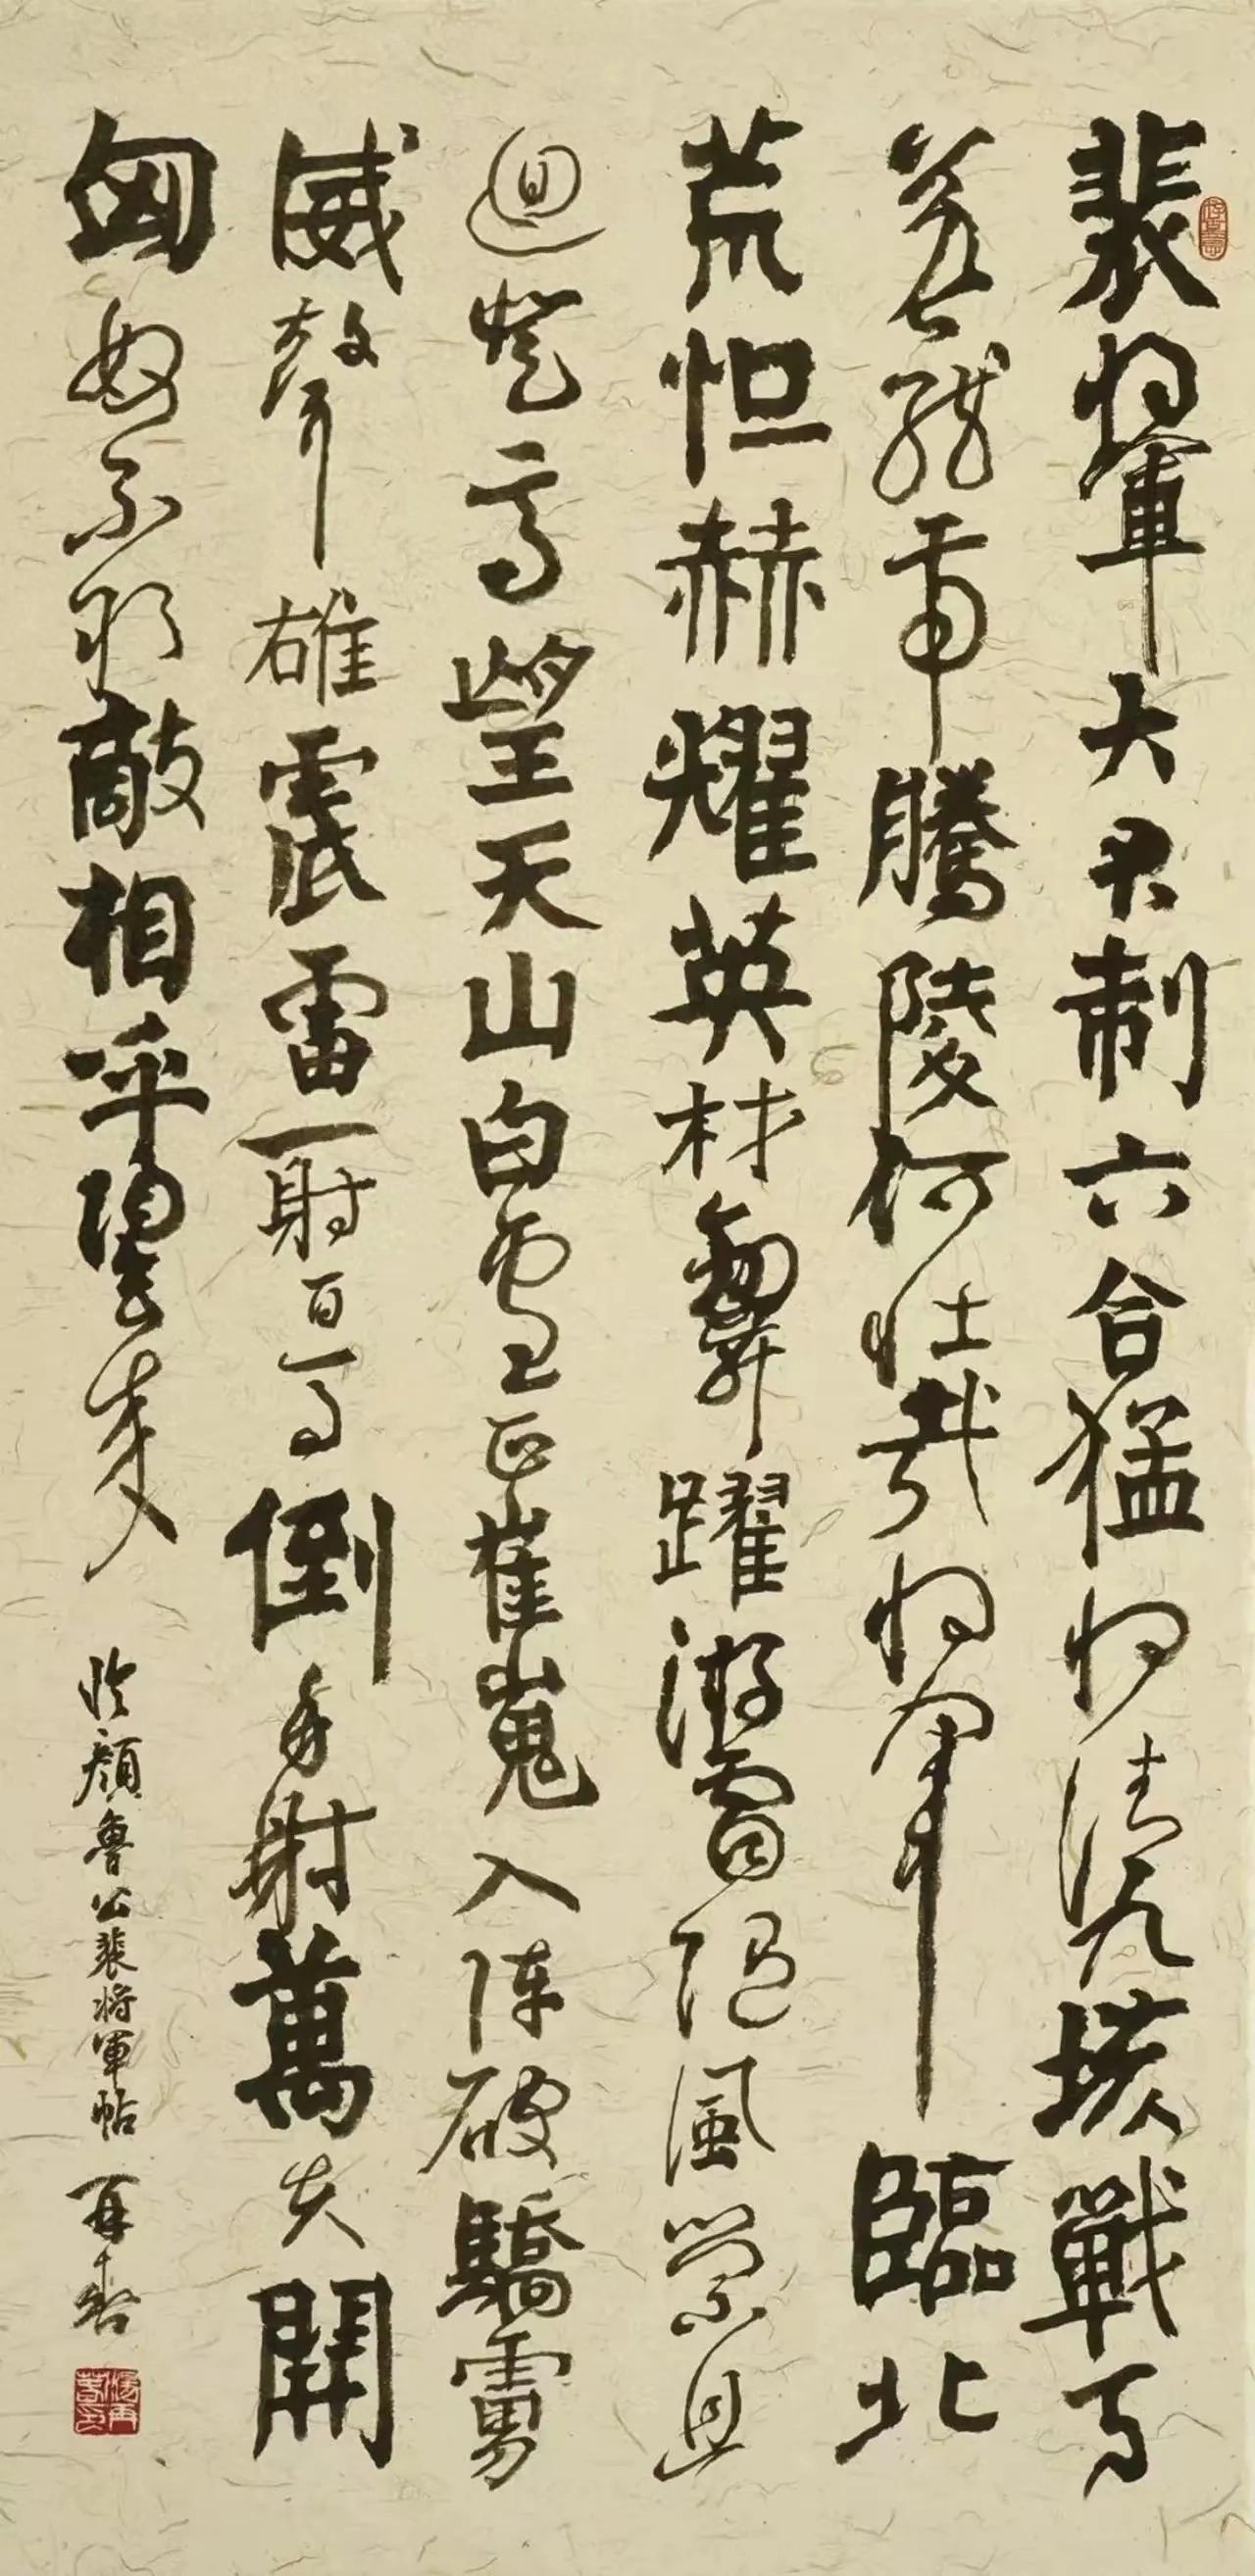 裴將軍大君制六合猛將清九垓戰馬
若龍虎騰陵何壯哉將軍臨北
荒怛赫耀英材舞躍游雷隨風縈且
迴登高望天山白雲正崔嵬入陣破驕虜
威聲雄震雷一射百馬倒再射萬夫開
匈奴不敢敵相呼歸去來
臨顏魯公裴將軍帖 再春
楊再春印